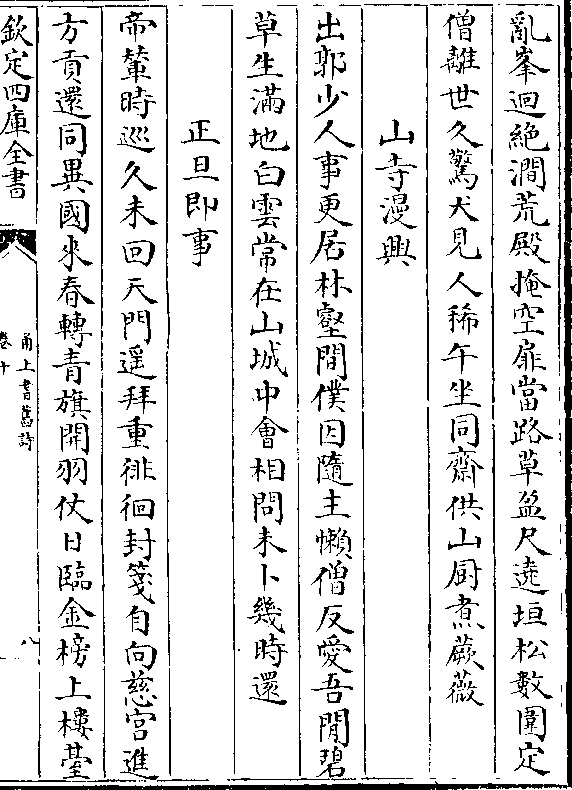 亂峯迴絶澗荒殿掩空扉當路草盈尺遶垣松數圍定
僧離世久驚犬見人稀午坐同齋供山厨煮蕨薇
山寺漫興
出郭少人事更居林壑間僕因隨主懶僧反愛吾閒碧
草生滿地白雲常在山城中會相問未卜幾時還
正旦即事
帝輦時巡久未回天門遥拜重徘徊封箋自向慈宫進
方貢還同異國來春轉青旗開羽仗日臨金榜上樓臺
欽定四庫全書
甬上耆舊詩
卷十
八